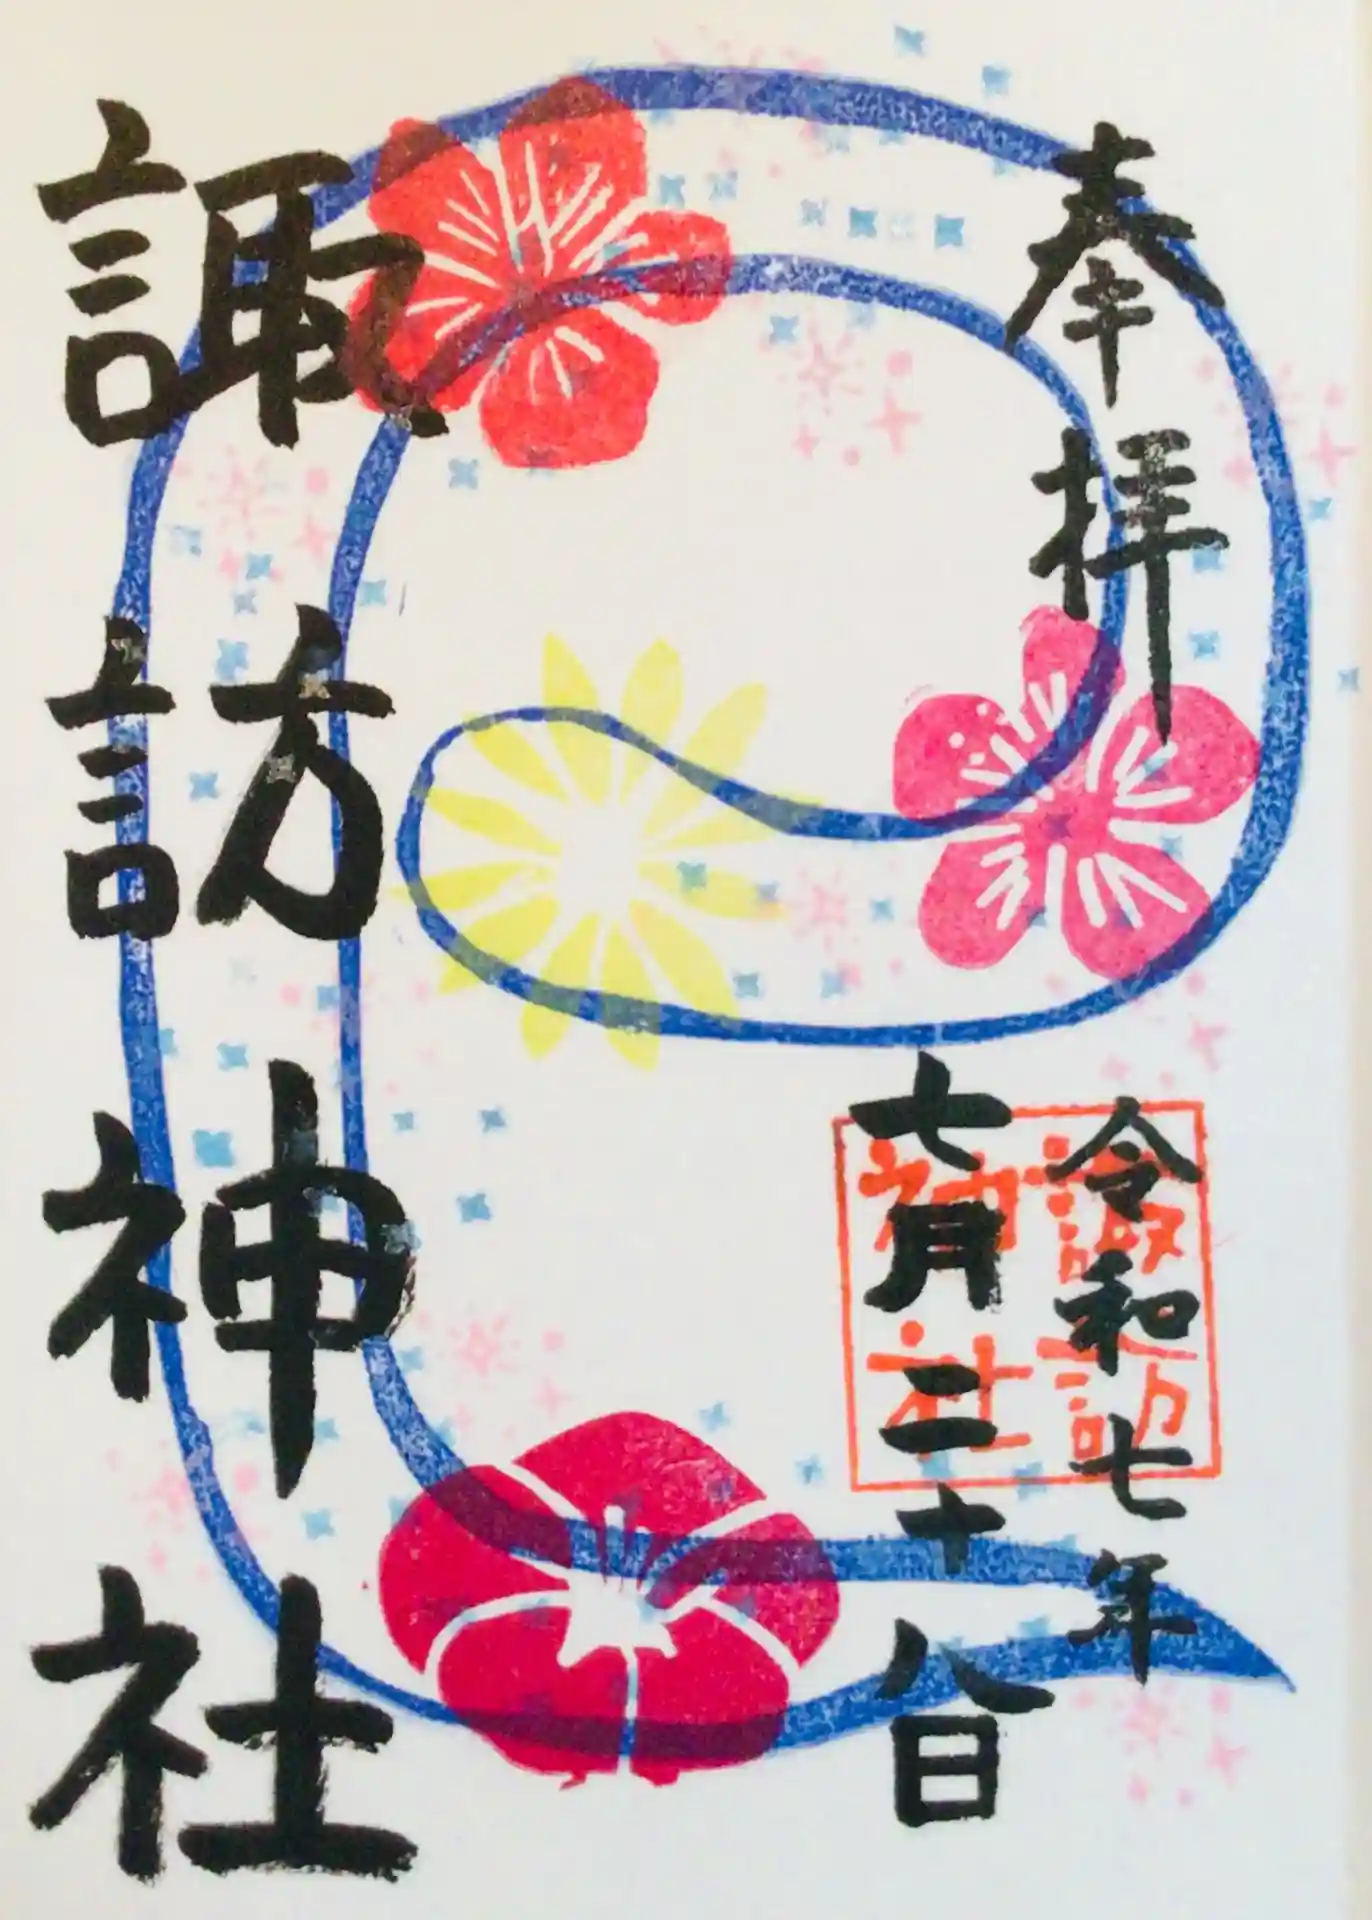 奉拝
令和七年
七月二十八日
諏訪
神社
諏訪神社